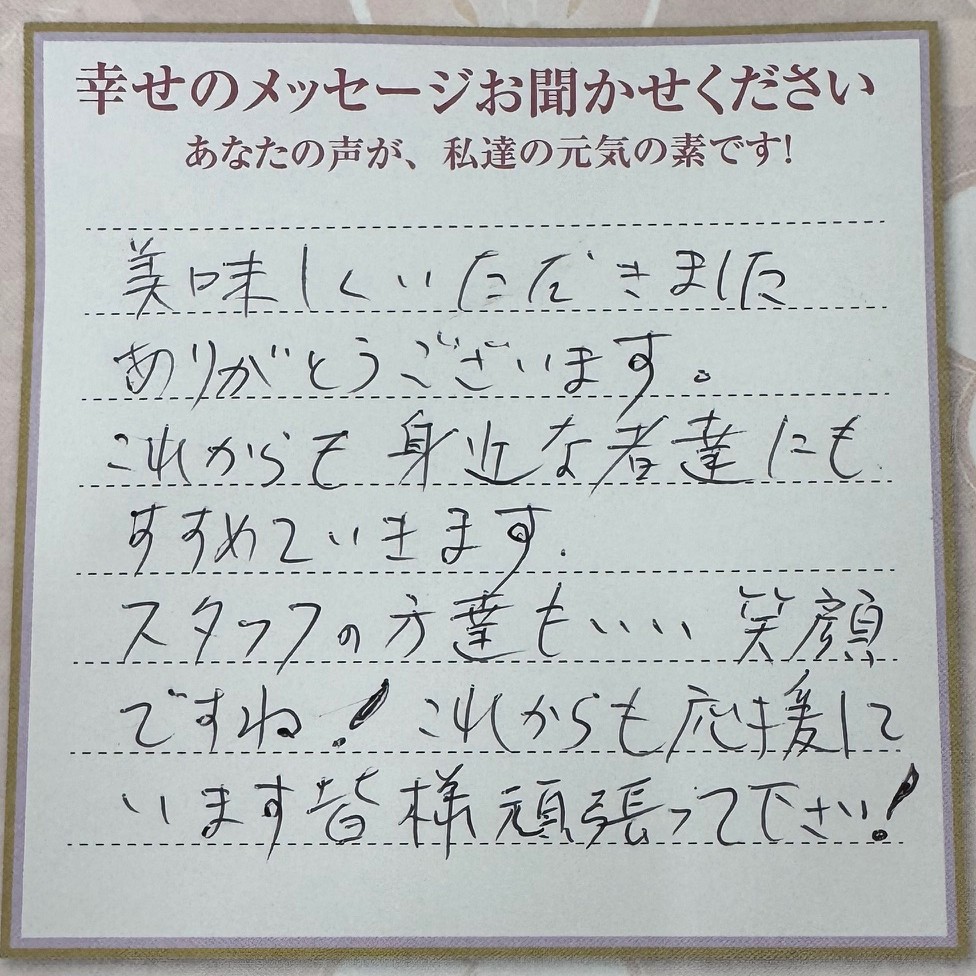 幸せのメッセージお聞かせください
あなたの声が、私達の元気の素です!
美味しくいただきました
ありがとうございます。
これからも身近な者達にも
すすめていきます.
スタッフの方達もいい笑顔
ですね! これからも応援して
います皆様頑張って下さい!